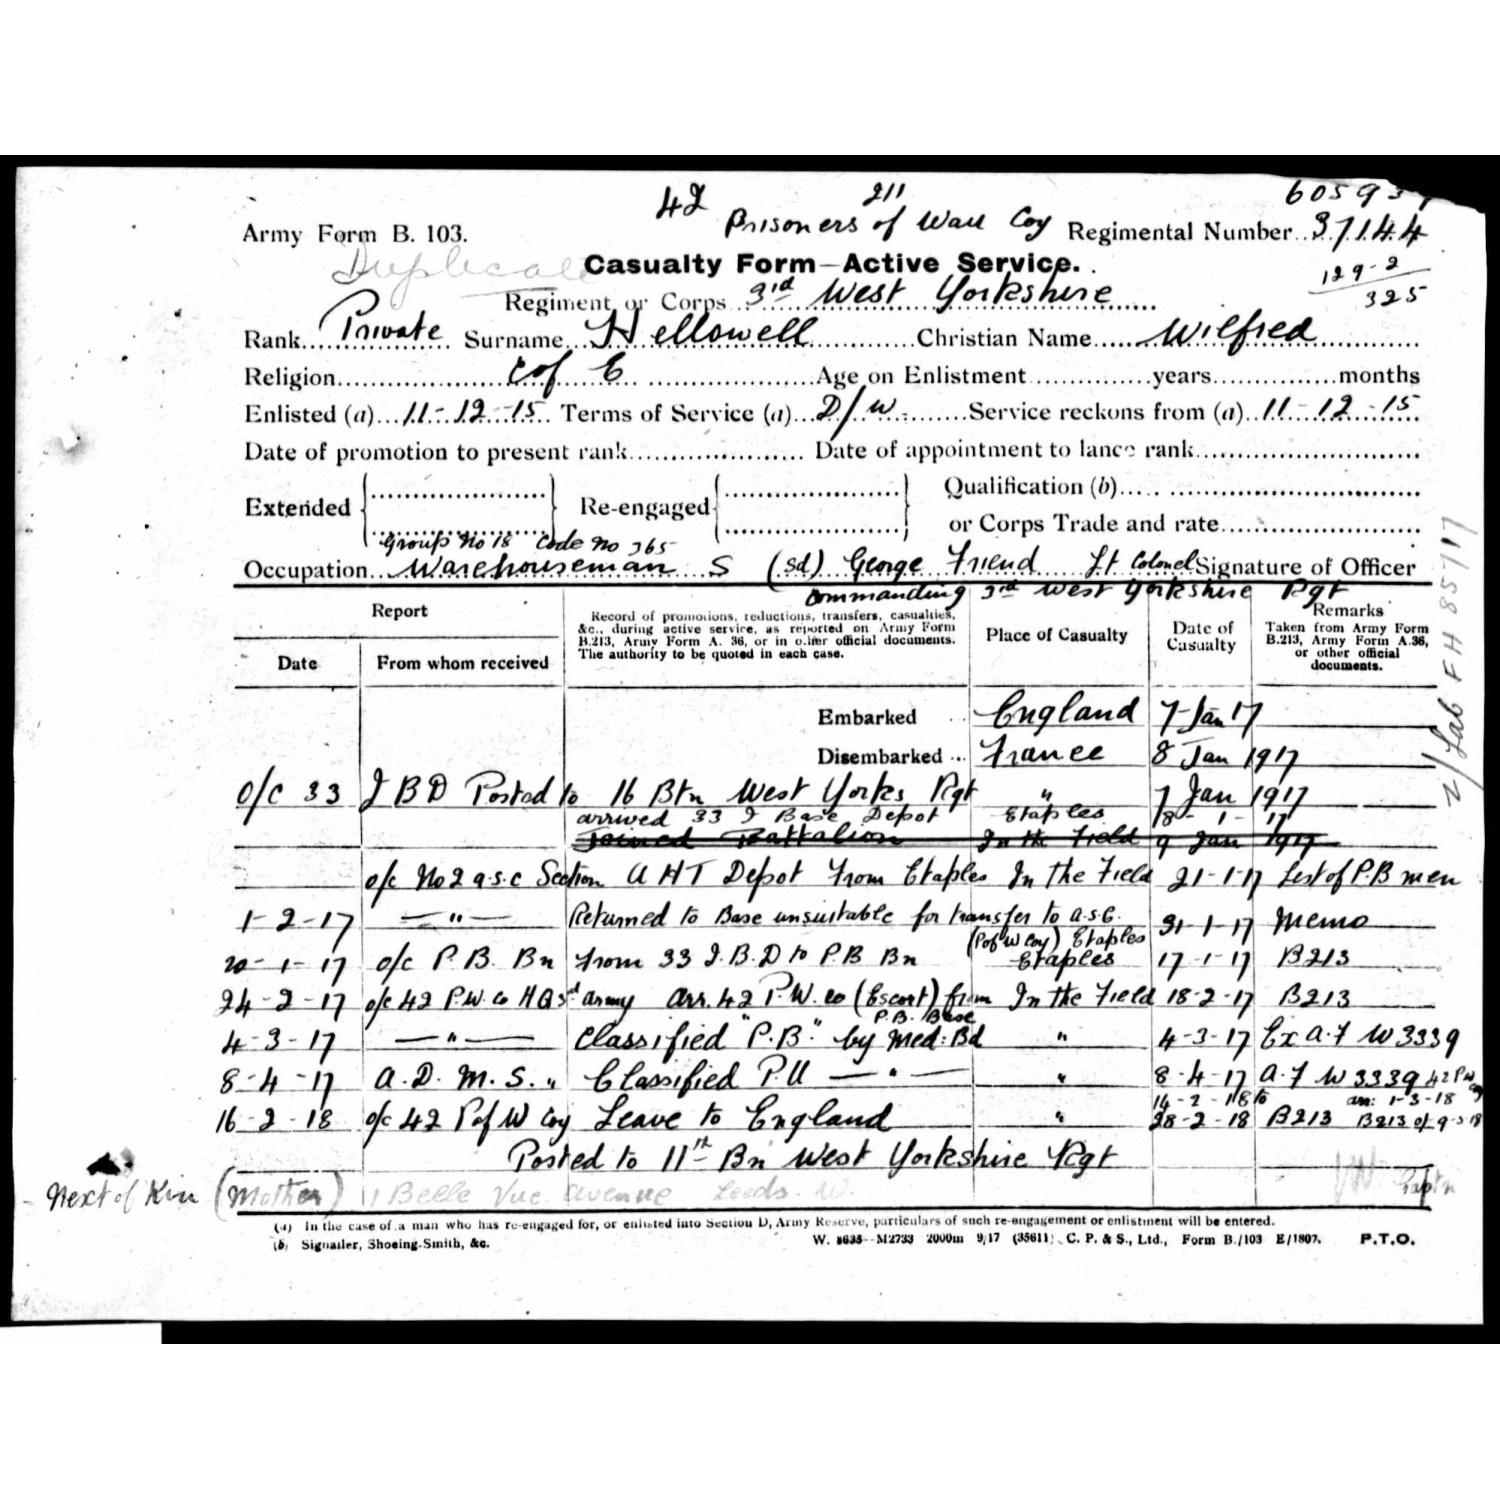 42 211 60593
Army Form B. 103. Prisoners of War Coy Regimental Number 37144
Duplicate Casualty Form—Active Service. 129-2
Regiment or Corps 3rd West Yorkshire 325
Rank Private Surname Hellowell Christian Name Wilfred
Religion C of E Age on Enlistment years months
Enlisted (a) 11-12-15 Terms of Service (a) D/W Service reckons from (a) 11-12-15
Date of promotion to present rank Date of appointment to lance rank
Extended Re-engaged Qualification (b)
or Corps Trade and rate
Group No 18 Code No 365
Occupation Warehouseman S (Sd) George Friend Lt Colonel Signature of Officer
Commanding 3rd West Yorkshire Rgt
Report Record of promotions, reductions, transfers, casualties, &c., during active service, as reported on Army Form B.213, Army Form A. 36, or in other official documents. The authority to be quoted in each case. Place of Casualty Date of Casualty Remarks Taken from Army Form B.213, Army Form A.36, or other official documents.
Date From whom received
Embarked England 7 Jan 17
Disembarked France 8 Jan 1917
O/C 33 I B D Posted to 16 Btn West Yorks Rgt " 7 Jan 1917
arrived 33 I Base Depot Etaples 8-1-17
Joined Battalion In the Field 9 Jan 1917
o/c No 2 a.s.c Section A H T Depot From Etaples In the Field 21-1-17 List of P.B men
1-2-17 " Returned to Base unsuitable for transfer to a.s.c. 31-1-17 Memo
(P of W Coy) Etaples
20-1-17 o/c P.B. Bn From 33 I.B.D to P.B Bn Etaples 17-1-17 B213
24-2-17 o/c 42 P.W. Co HQ 3rd army Arr. 42 P.W. Co (Escort) from P.B. Base In the Field 18-2-17 B213
4-3-17 " Classified "P.B." by Med: Bd " 4-3-17 Ex A.F W3339
8-4-17 A.D.M.S. " Classified P.U " " 8-4-17 A.F W3339 42 P.W
14-2-18 to arr: 1-3-18
16-2-18 o/c 42 P of W Coy Leave to England " 28-2-18 B213 B213 of 9-3-18
Posted to 11th Bn West Yorkshire Rgt
Captn
Next of Kin (Mother) 11 Belle Vue Avenue Leeds. W.
(a) In the case of a man who has re-engaged for, or enlisted into Section D, Army Reserve, particulars of such re-engagement or enlistment will be entered.
(b) Signaller, Shoeing-Smith, &c. W. 8635—M2733 2000m 9/17 (35611) C. P. & S., Ltd., Form B./103 E/1807. P.T.O.